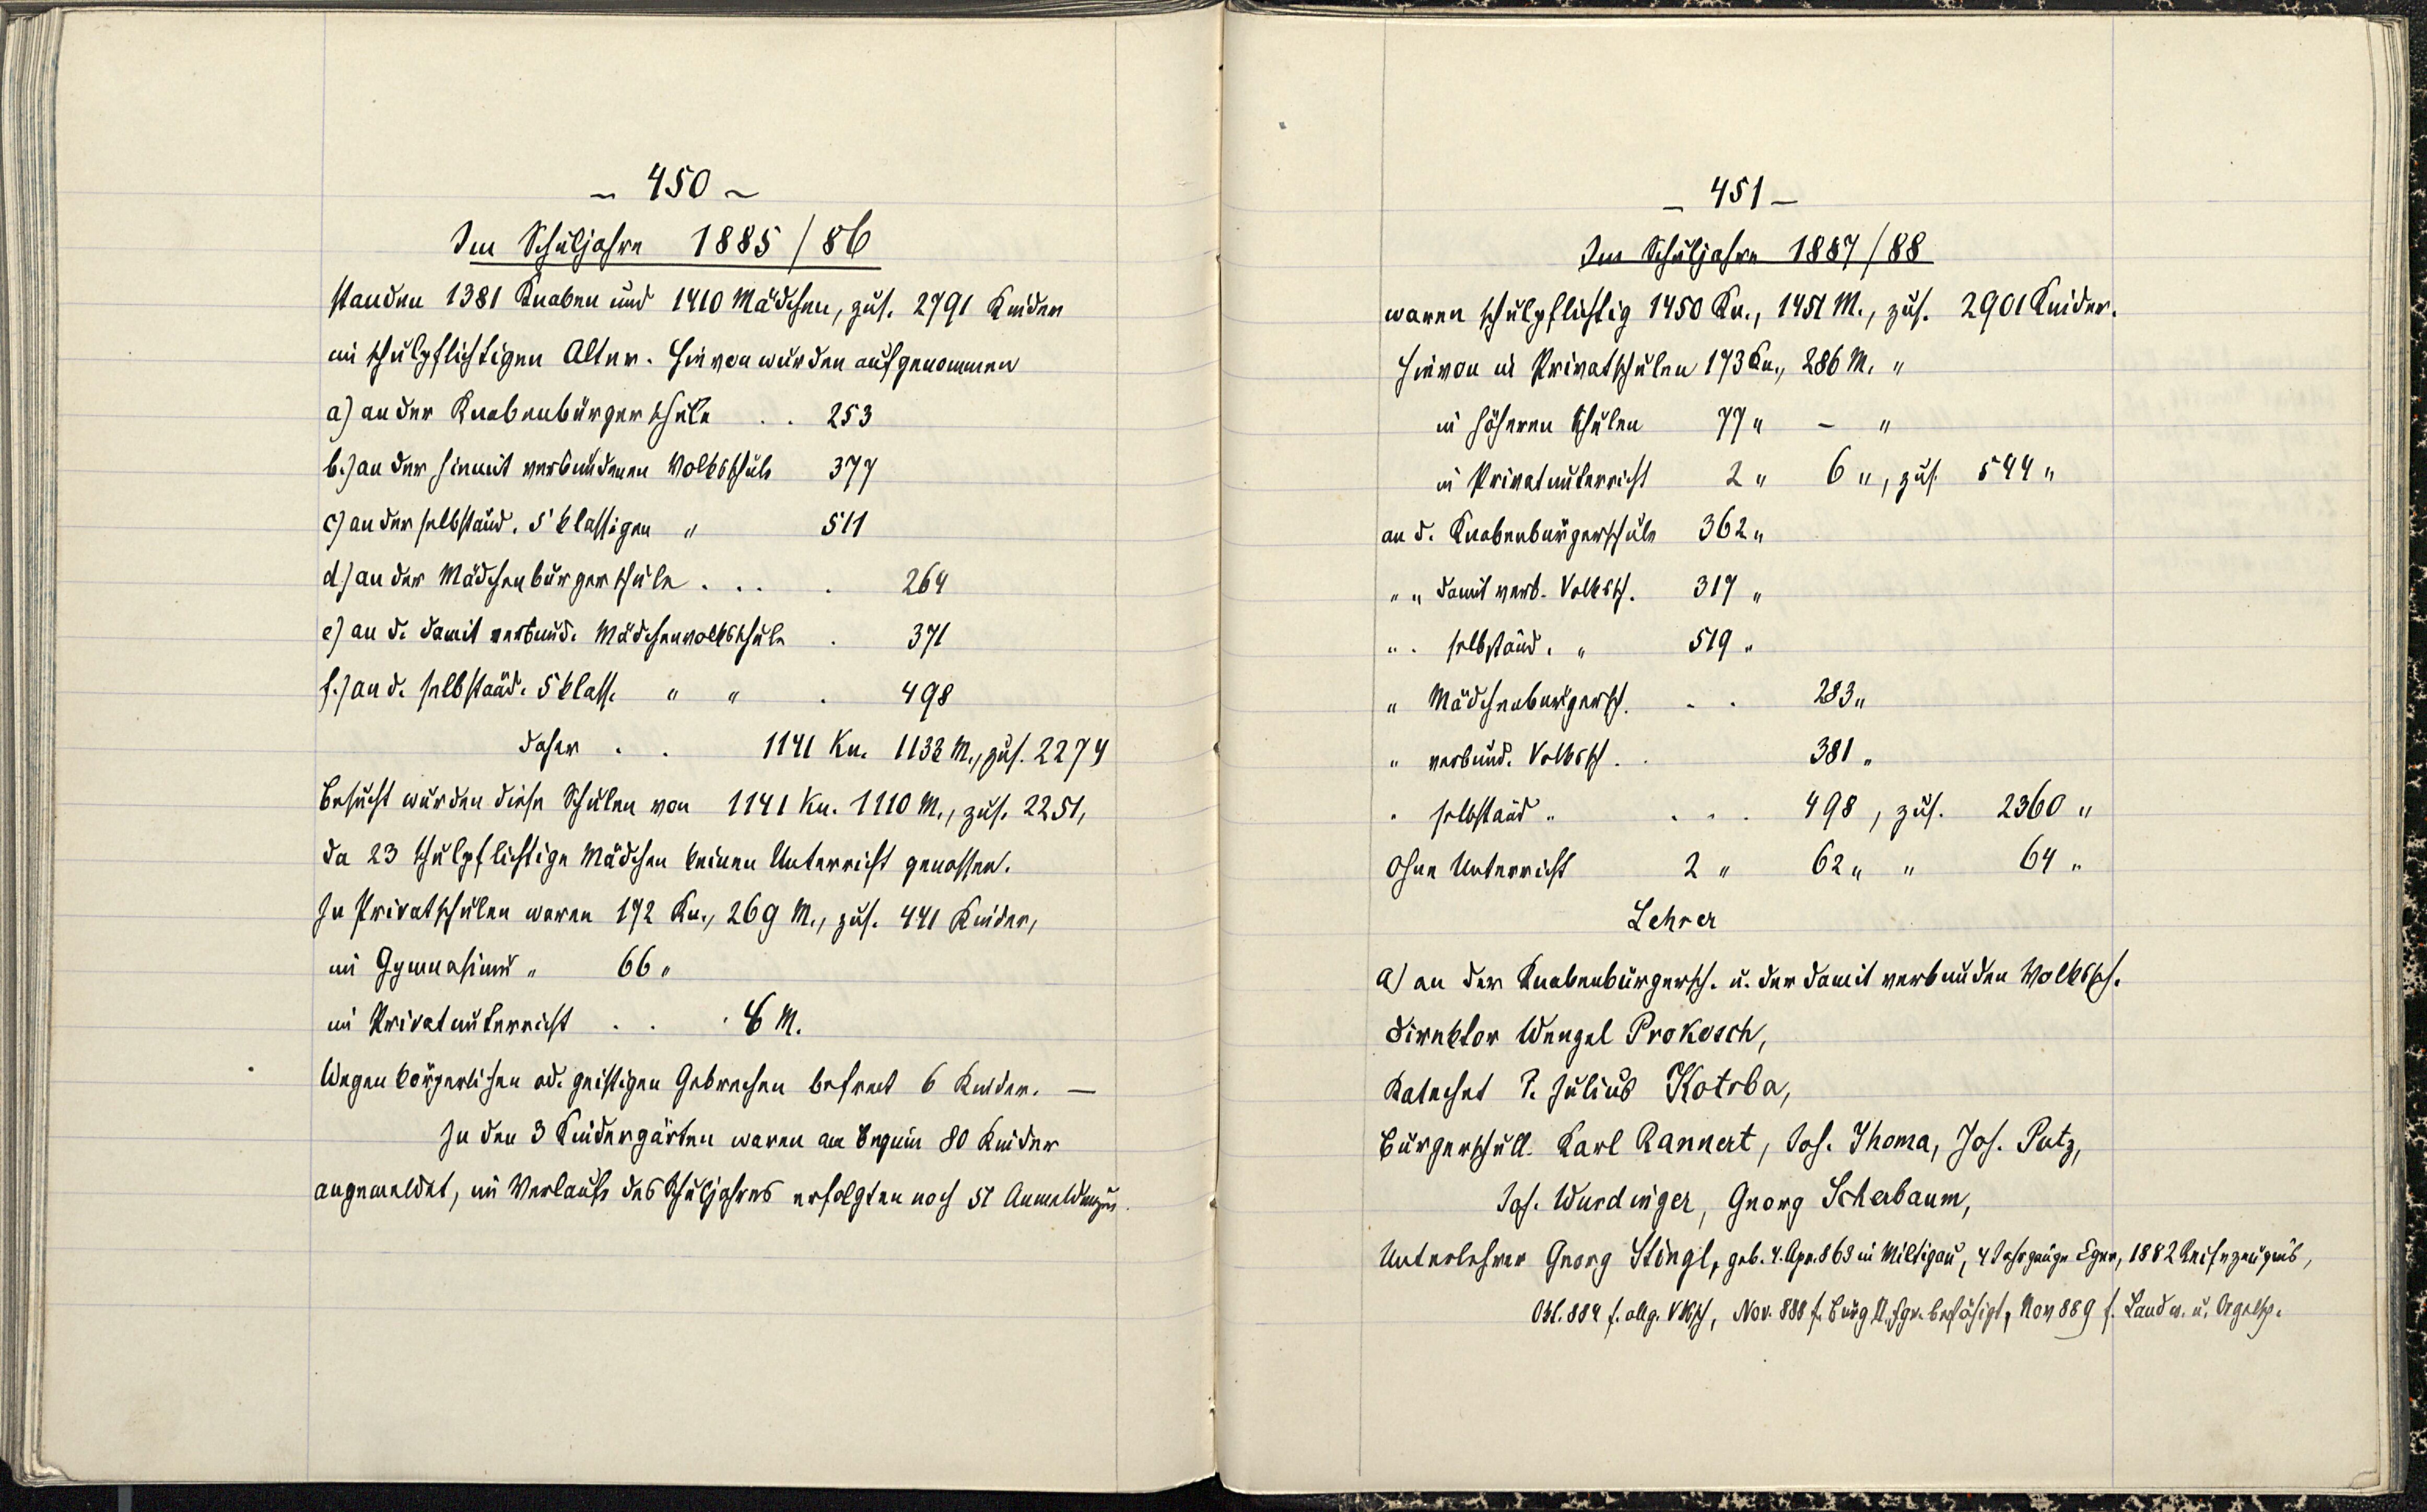 - 450 -
Im Schuljahre 1885/86
standen 1381 Knaben und 1410 Mädchen, zus. 2791 Kinder
im schulpflichtigen Alter. Hievon wurden aufgenommen
a) an der Knabenbürgerschule . . 253
b.) an der hiemit verbundenen Volksschule 377
c) an der selbständ. 5 klassigen " 511
d) an der Mädchenbürgerschule . . . . 264
e) an d. damit verbund. Mädchenvolksschule . 371
f.) an d. selbständ. 5 klass. " " . 498
daher . . 1141 Kn. 1133 M., zus. 2274
Besucht wurden diese Schulen von 1141 Kn. 1110 M., zus. 2251,
da 23 schulpflichtige Mädchen keinen Unterricht genossen.
In Privatschulen waren 172 Kn., 269 M., zus. 441 Kinder,
im Gymnasium " 66 "
im Privatunterricht . . . 6 M.
Wegen körperlichen od. geistigen Gebrechen befreit 6 Kinder. —
In den 3 Kindergärten waren am Beginn 80 Kinder
angemeldet, im Verlaufe des Schuljahres erfolgten noch 51 Anmeldungen.
- 451 -
Im Schuljahre 1887/88
waren schulpflichtig 1450 Kn., 1451 M., zus. 2901 Kinder.
Hievon in Privatschulen 173 Kn., 286 M. "
in höheren Schulen 77 " - "
in Privatunterricht 2 " 6 ", zus. 544 "
an d. Knabenbürgerschule 362 "
" " damit verb. Volkssch. 317 "
" . selbständ. " 519 "
" Mädchenbürgersch. . . 283 "
" verbund. Volkssch. . 381 "
" selbständ " . . . 498, zus. 2360 "
Ohne Unterricht 2 " 62 " " 64 "
Lehrer
a) an der Knabenbürgersch. u. der damit verbunden Volkssch.
Direktor Wenzel Prokosch,
Katechet P. Julius Kotrba,
Bürgerschull. Karl Rannert, Jos. Thoma, Jos. Putz,
Jos. Wurdinger, Georg Scherbaum,
Unterlehrer Georg Stingl, geb. 4. Apr. 863 in Miltigau, 4 Jahrgänge Eger, 1882 Reifezeugnis,
Okt. 884 f. allg. Vksch, Nov. 888 f. Bürg II. Fgr. befähigt, Nov 889 f. Landw. u. Orgelsp.